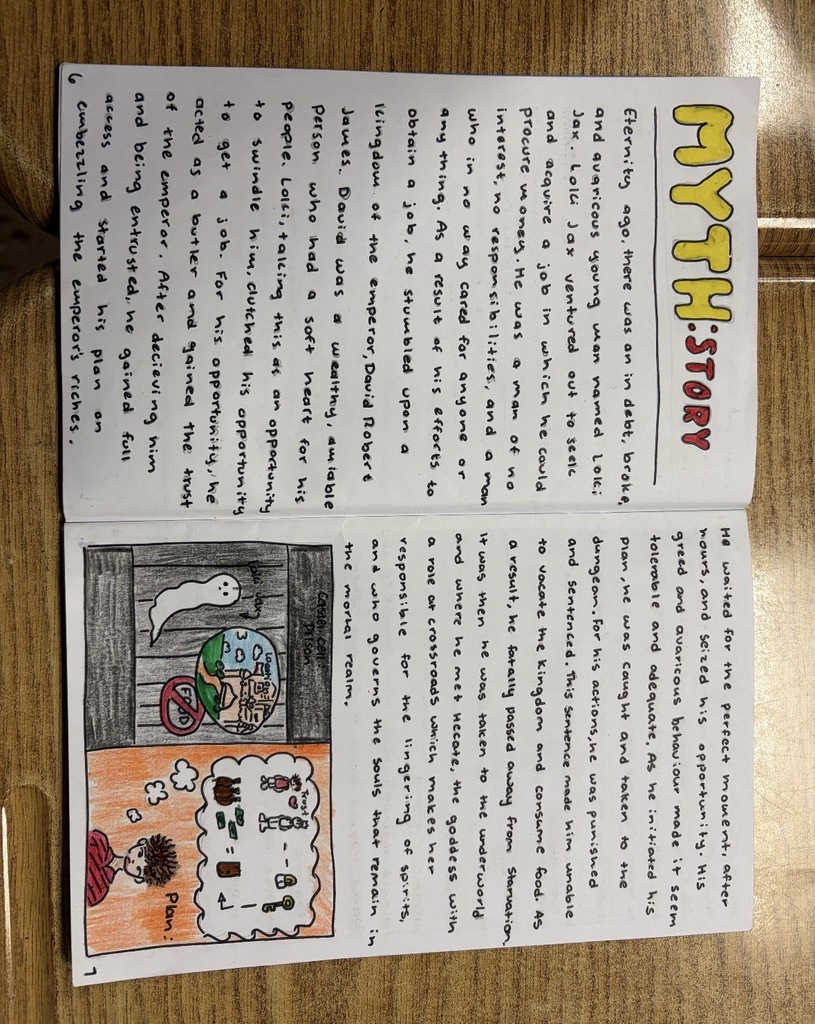 MYTH: STORY
Eternity ago, there was an in debt, broke,
and avaricous young man named Loki
Jax. Loki Jax ventured out to seek
and acquire a job in which he could
procure money. He was a man of no
interest, no responsibilities, and a man
who in no way cared for anyone or
anything. As a result of his efforts to
obtain a job, he stumbled upon a
kingdom of the emperor, David Robert
James. David was a wealthy, amiable
person who had a soft heart for his
people. Loki, taking this as an opportunity
to swindle him, clutched his opportunity
to get a job. For his opportunity, he
acted as a butler and gained the trust
of the emperor. After decieving him
and being entrusted, he gained full
access and started his plan on
embezzling the emperor's riches.
6
He waited for the perfect moment, after
hours, and seized his opportunity. His
greed and avaricous behaviour made it seem
tolerable and adequate. As he initiated his
plan, he was caught and taken to the
dungeon. For his actions, he was punished
and sentenced. This sentence made him unable
to vacate the kingdom and consume food. As
a result, he fatally passed away from starvation.
It was then he was taken to the underworld
and where he met Hecate, the goddess with
a role at crossroads which makes her
responsible for the lingering of spirits,
and who governs the souls that remain in
the mortal realm.
Prison
Location:
FOOD
Trust
=
Plan:
7